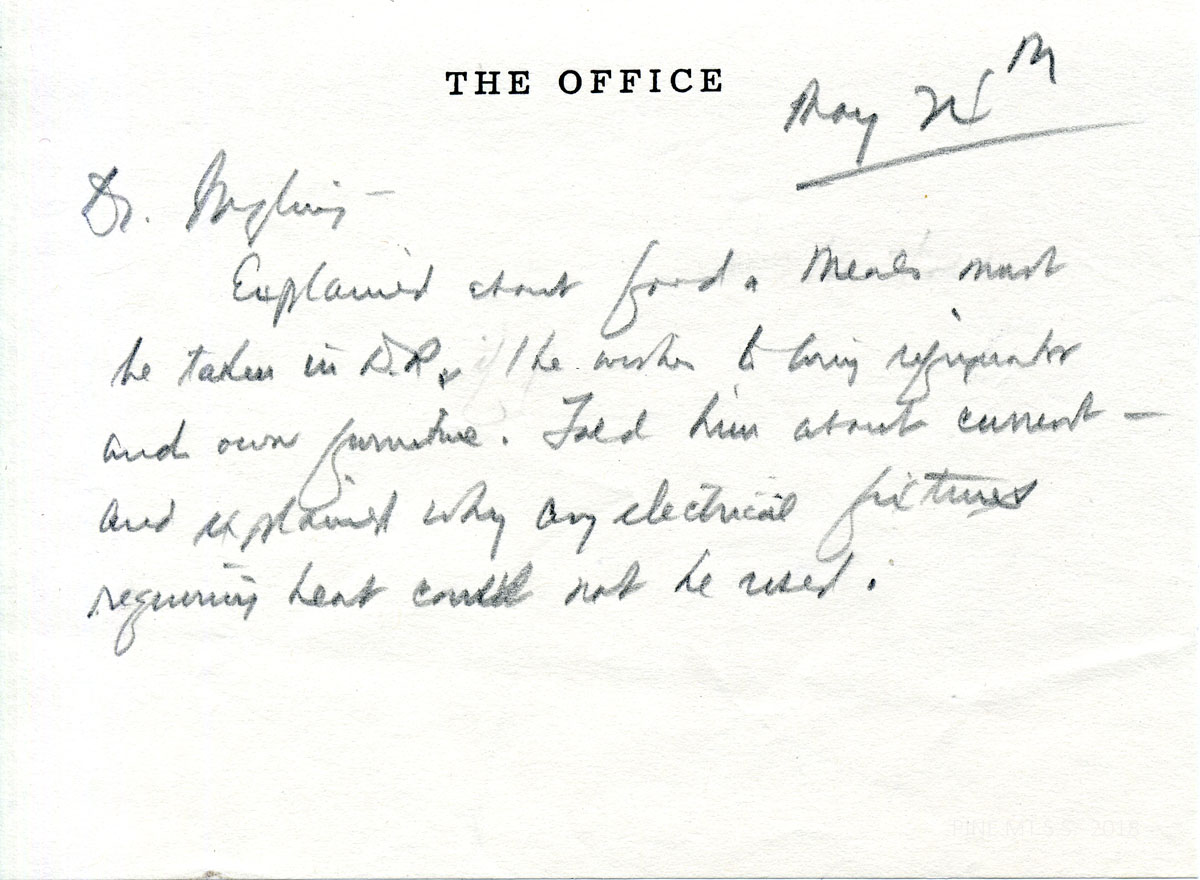 THE OFFICE
May 24th
Dr.
Explained about food. Meals must
be taken in D.R. He wishes to bring refrigerator
and own furniture. Told him about current –
and explained why any electrical fixtures
requiring heat could not be used.
PINE MT.S.S. 2018